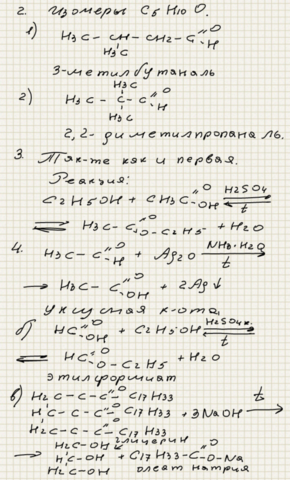 2. Изомеры C5H10O.
1) H3C - CH - CH2 - C =O H
H3C
3-метилбутаналь
H3C
2) H3C - C - C =O H
H3C
2,2-диметилпропаналь.
3. Так-же как и первая.
Реакция:
C2H5OH + CH3C =O OH H2SO4 t
H3C - C =O O-C2H5 + H2O
4. H3C - C =O H + Ag2O NH3·H2O t
→ H3C - C =O OH + 2Ag↓
уксусная к-ота
б) HC =O OH + C2H5OH H2SO4к. t
HC =O O - C2H5 + H2O
этилформиат
в) H2C - C - C =O C17H33 t
HC - C - C =O C17H33 + 3NaOH →
H2C - C - C =O C17H33
H2C-OH глицерин
→ HC-OH + C17H33-C =O O-Na
H2C-OH олеат натрия